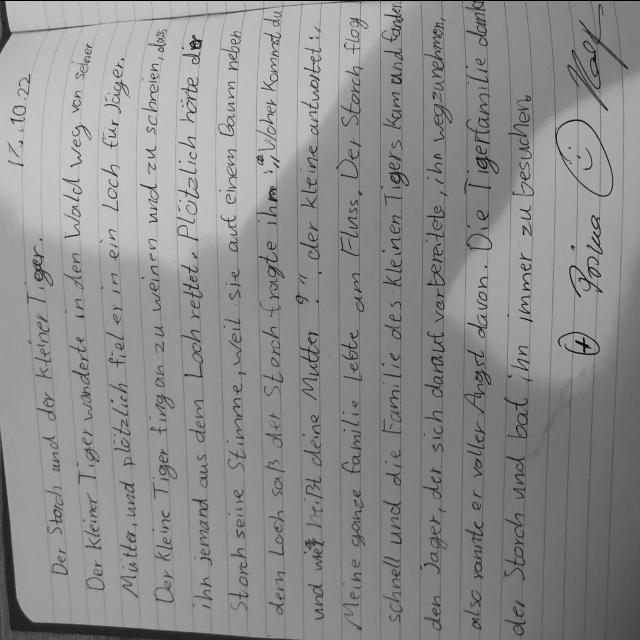 12.10.22
Der Storch und der Kleiner Tiger.
Der Kleiner Tiger wanderte in den Wald weg von seiner
Mutter, und plötzlich fiel er in ein Loch für Jäger.
Der Kleine Tiger fing an zu weinen und zu schreien, dass
ihn jemand aus dem Loch rettet. Plötzlich hörte der
Storch seine Stimme, weil sie auf einem Baum neben
dem Loch saß der Storch fragte ihm: „Woher Kommst du
und wie heißt deine Mutter?" der Kleine antwortet:
Meine ganze familie lebte am Fluss. Der Storch flog
schnell und die Familie des kleinen Tigers kam und fanden
den Jager, der sich darauf vorbereitete, ihn wegzunehmen,
also rannte er voller Angst davon. Die Tigerfamilie dankte
der Storch und bat, ihn immer zu besuchen.